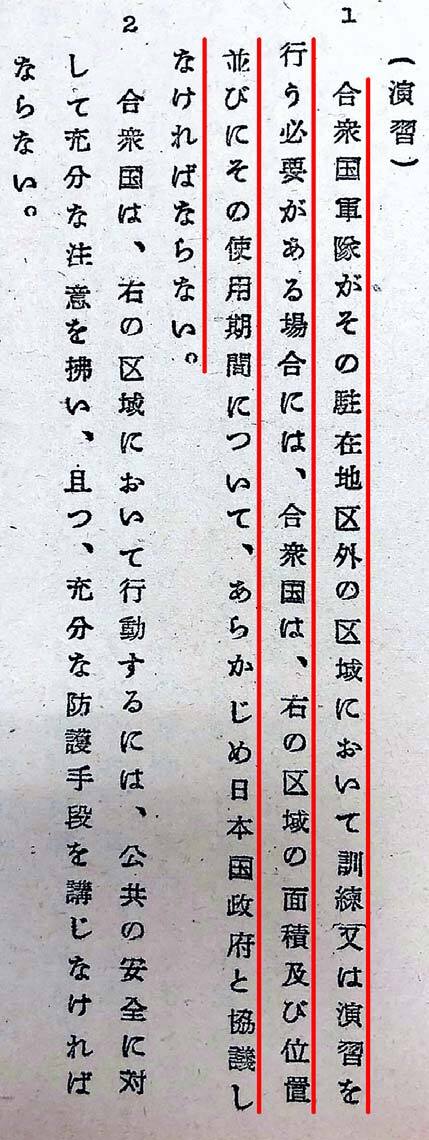 (演習)
1 合衆国軍隊がその駐在地区外の区域において訓練又は演習を
行う必要がある場合には、合衆国は、右の区域の面積及び位置
並びにその使用期間について、あらかじめ日本国政府と協議し
なければならない。
2 合衆国は、右の区域において行動するには、公共の安全に対
して充分な注意を拂い、且つ、充分な防護手段を講じなければ
ならない。